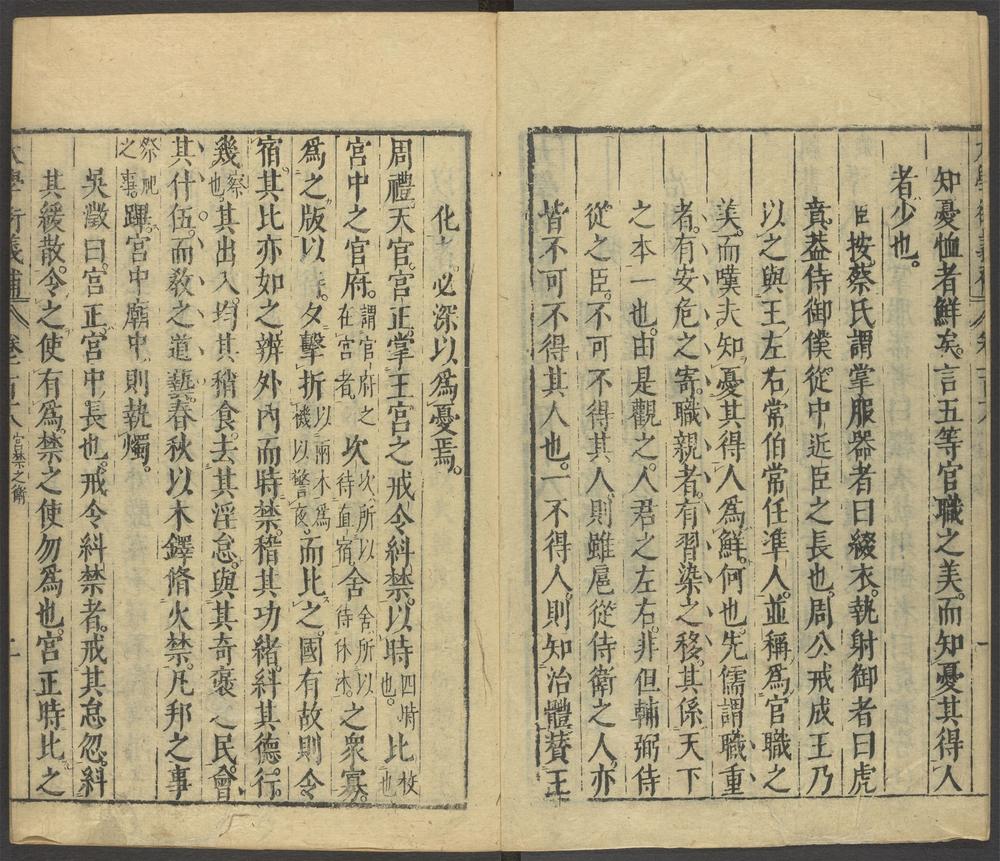 知憂恤者鮮矣言五等官職之美而知憂其得人
者少也
臣按蔡氏謂掌服器者曰綴衣執射御者曰虎
賁葢侍御僕從中近臣之長也周公戒成王乃
以之與王左右常伯常任準人並稱爲官職之
美而嘆夫知憂其得人爲鮮何也先儒謂職重
者有安危之寄職親者有習染之移其係天下
之本一也由是觀之人君之左右非但輔弼侍
從之臣不可不得其人則雖扈從侍衛之人亦
皆不可不得其人也一不得人則知治體賛王
化 必深以爲憂焉
周禮天官宮正掌王宮之戒令糾禁以時四時也比校也
宮中之官府謂官府之在宮者次次所以待直宿舍舍所以待休沐之衆寡
爲之版以 夕擊柝以兩木爲機以警夜而比之國有故則令
宿其比亦如之辨外內而時禁稽其功緒糾其德行
幾察也其出入均其稍食去其淫怠與其奇衺之民會
其什伍而敎之道藝春秋以木鐸脩火禁凡邦之事
祭祀之事蹕宮中廟中則執燭
吳澂曰宮正宮中長也戒令糾禁者戒其怠忽糾
其緩散令之使有爲禁之使勿爲也宮正時比之
大學衍義補 卷一百十六 宮禁之衛